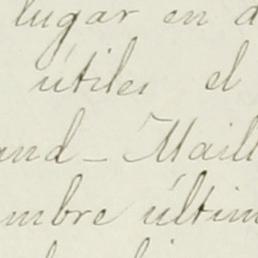 lugar en d
útiles el
and - Maill
mbre últim